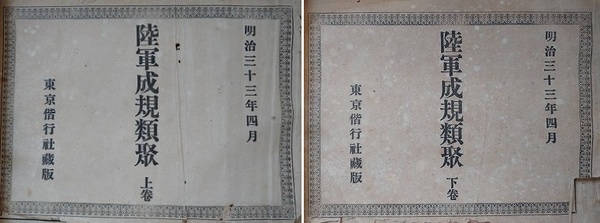 明治三十三年四月
陸軍成規類聚 上卷
東京偕行社藏版
明治三十三年四月
陸軍成規類聚 下卷
東京偕行社藏版